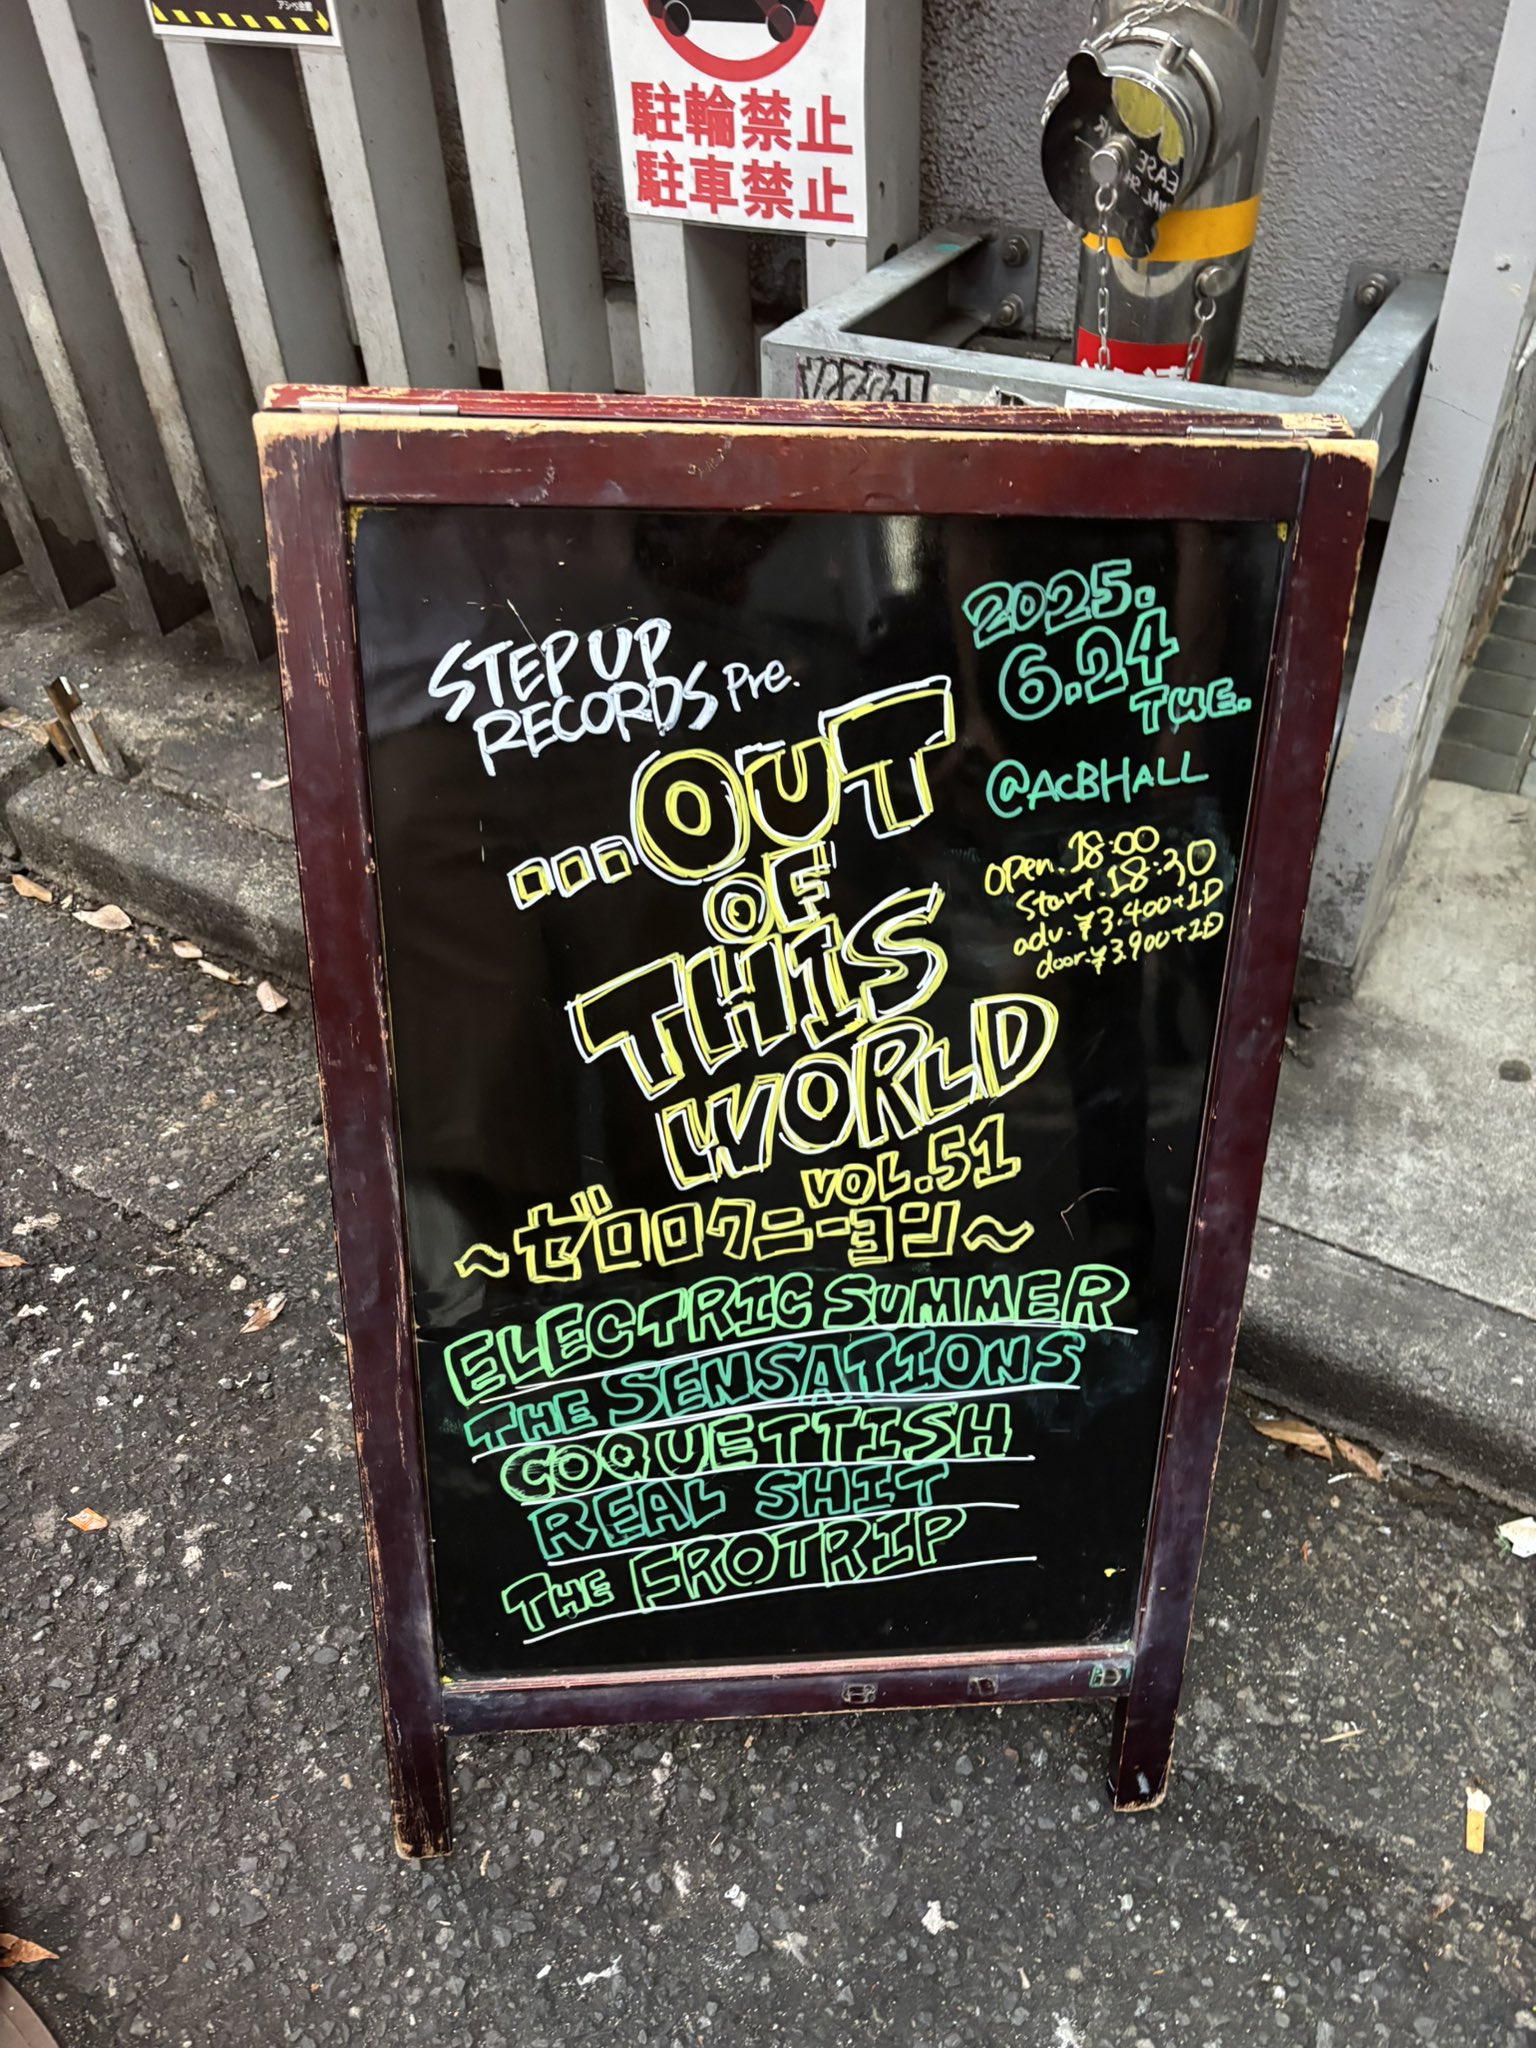 アシベ会館
駐輪禁止
駐車禁止
STEP UP
RECORDS Pre.
2025.
6.24
TUE.
@ACBHALL
...OUT
OF
THIS
WORLD
VOL.51
open.18:00
start.18:30
adv.¥3.400+1D
door.¥3.900+1D
～ゼロロクニーヨン～
ELECTRIC SUMMER
THE SENSATIONS
COQUETTISH
REAL SHIT
THE FROTRIP